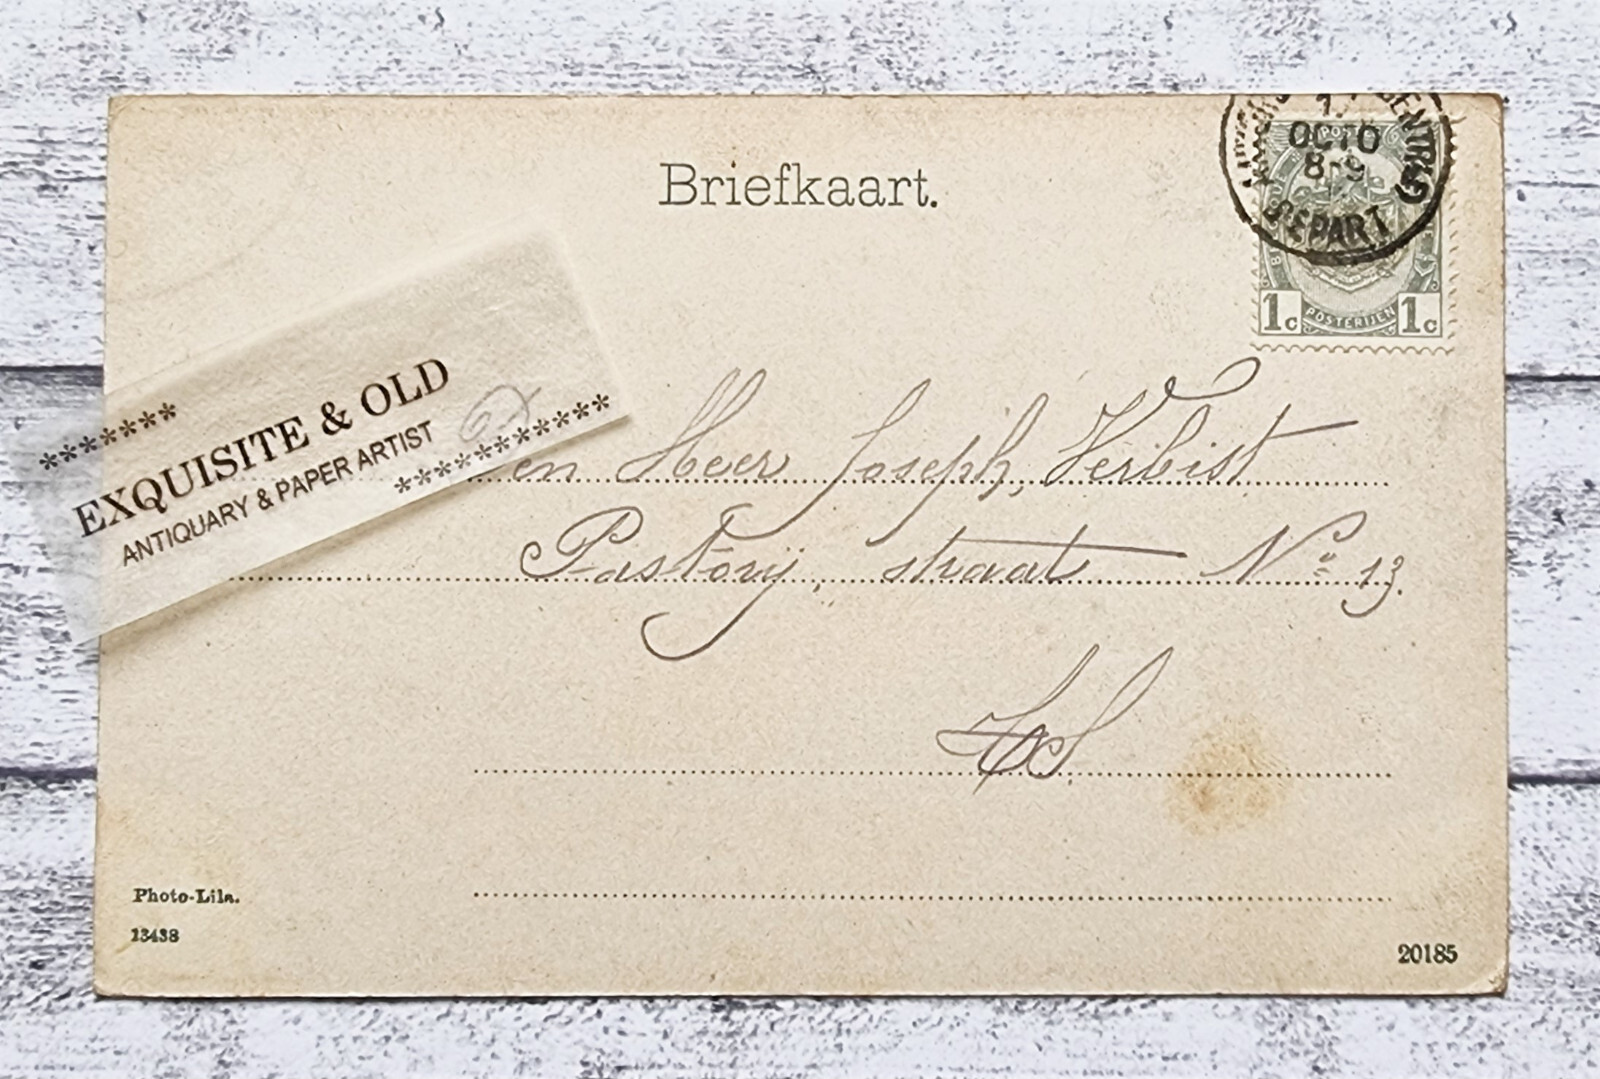 Briefkaart.
OCTO
8-9
DEPART
1c POSTERIJEN 1c
*******
EXQUISITE & OLD
ANTIQUARY & PAPER ARTIST
***********
Den Heer Joseph, Verbist
Pastorij, straat Nº 13.
Photo-Lila.
13438
20185